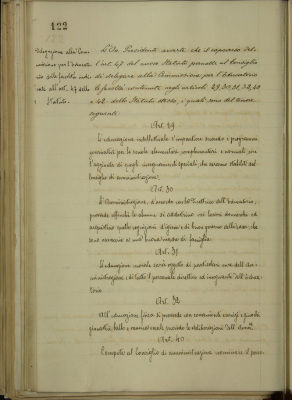 122
Delegazione alla Com-
missione per l'Educato-
rio delle facoltà indi-
cate all'art. 47 dello
Statuto.
L'On. Presidente avverte che
l'art. 47 del nuovo Statuto permette al Consiglio
di delegare alla Commissione per l'Educatorio
le facoltà contenute negli articoli 29, 30, 31, 32, 40
e 42 dello Statuto stesso, i quali sono del tenore
seguente:
Art. 29
L'educazione intellettuale s'impartisce secondo i programmi
governativi per le scuole elementari, complementari e normali con
l'aggiunta di quegli insegnamenti speciali, che saranno stabiliti dal
Consiglio di amministrazione.
Art. 30
L'Amministrazione, d'accordo con la Direttrice dell'Educatorio,
provvede affinchè le alunne si addestrino nei lavori domestici ed
acquistino quelle cognizioni d'igiene e di buon governo della casa, che
sono necessarie ad una buona madre di famiglia.
Art. 31
L'educazione morale sarà oggetto di particolare cura dell'Am-
ministrazione e di tutto il personale direttivo ed insegnante dell'Educa-
torio.
Art. 32
All'educazione fisica si provvede con convenienti esercizi e giuochi
ginnastici, balli e
Art. 40
Compete al Consiglio di amministrazione nominare il perso-